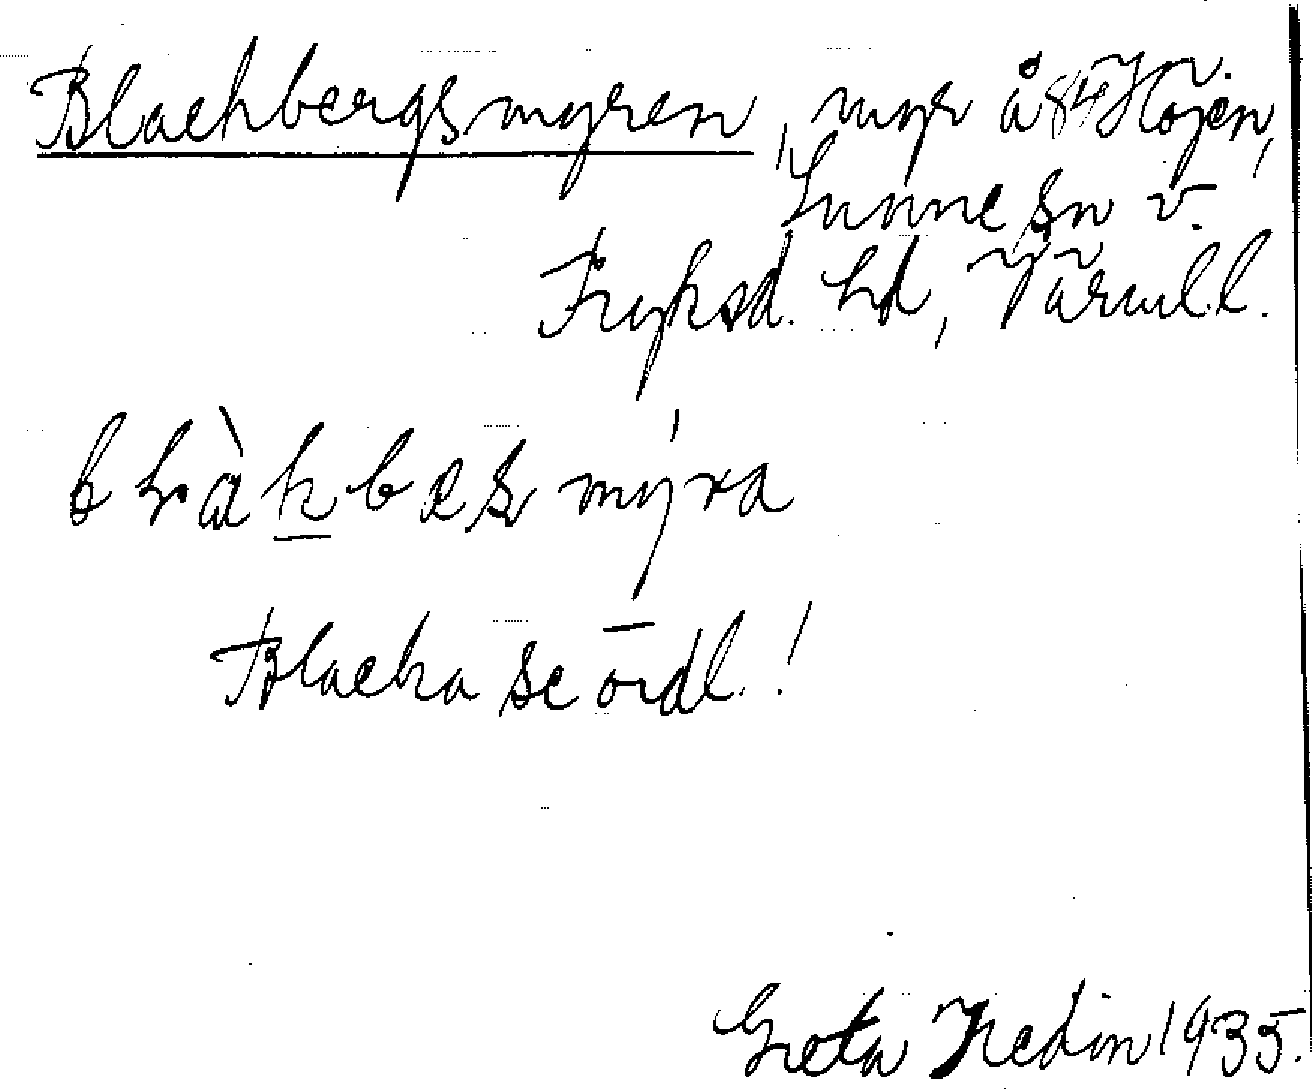 Blackbergsmyren, myr å 84 Höjen,
Sunne sn v.
Fryksd. hd, Värml.l.
myra
Blacka se ordl.!
Greta Hedin 1935.